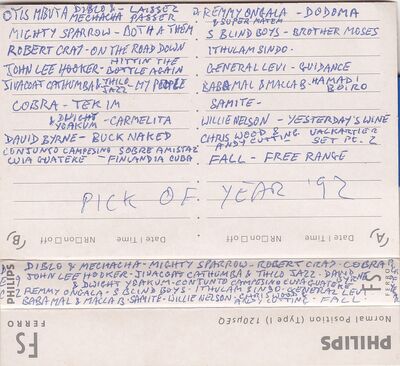 OTIS MBUTA DIBLO & MECHACHA - LAISSEZ PASSER
MIGHTY SPARROW - BOTH A THEM
ROBERT CRAY - ON THE ROAD DOWN
JOHN LEE HOOKER - HITTIN THE BOTTLE AGAIN
JIVACOAT CATHUMBA & THILO JAZZ - MY PEOPLE
COBRA - TEK IM
& DWIGHT YOAKUM - CARMELITA
DAVID BYRNE - BUCK NAKED
CONJUNTO CAMPESINO CUIA GUATEKE - SOBRE AMISTAZ FINLANDIA CUBA
REMMY ONGALA & SUPER MATEM - DODOMA
S BLIND BOYS - BROTHER MOSES
ITHULAM SINDO -
GENERAL LEVI - GUIDANCE
BABA MAL & MALLA B. HAMADI BOIRO
SAMITE -
WILLIE NELSON - YESTERDAY'S WINE
CHRIS WOOD & ANDY CUTTING VALKARTIER SET PT. 2
FALL - FREE RANGE
PICK OF YEAR '92
A Date | Time NR □ on □ off
B Date | Time NR □ on □ off
DIBLO & MECHACHA - MIGHTY SPARROW - ROBERT CRAY - COBRA
JOHN LEE HOOKER - JIVACOAT CATHUMBA & THILO JAZZ - DAVID BYRNE
& DWIGHT YOAKUM - CONJUNTO CAMPESINO CUIA GUATEKE
REMMY ONGALA - S BLIND BOYS - ITHULAM SINDO - GENERAL LEVI
BABA MAL & MALLA B - SAMITE - WILLIE NELSON - CHRIS WOOD & ANDY CUTTING - FALL
PHILIPS
FS
FERRO
FS
FERRO
Normal Position (Type I) 120µsEQ
PHILIPS